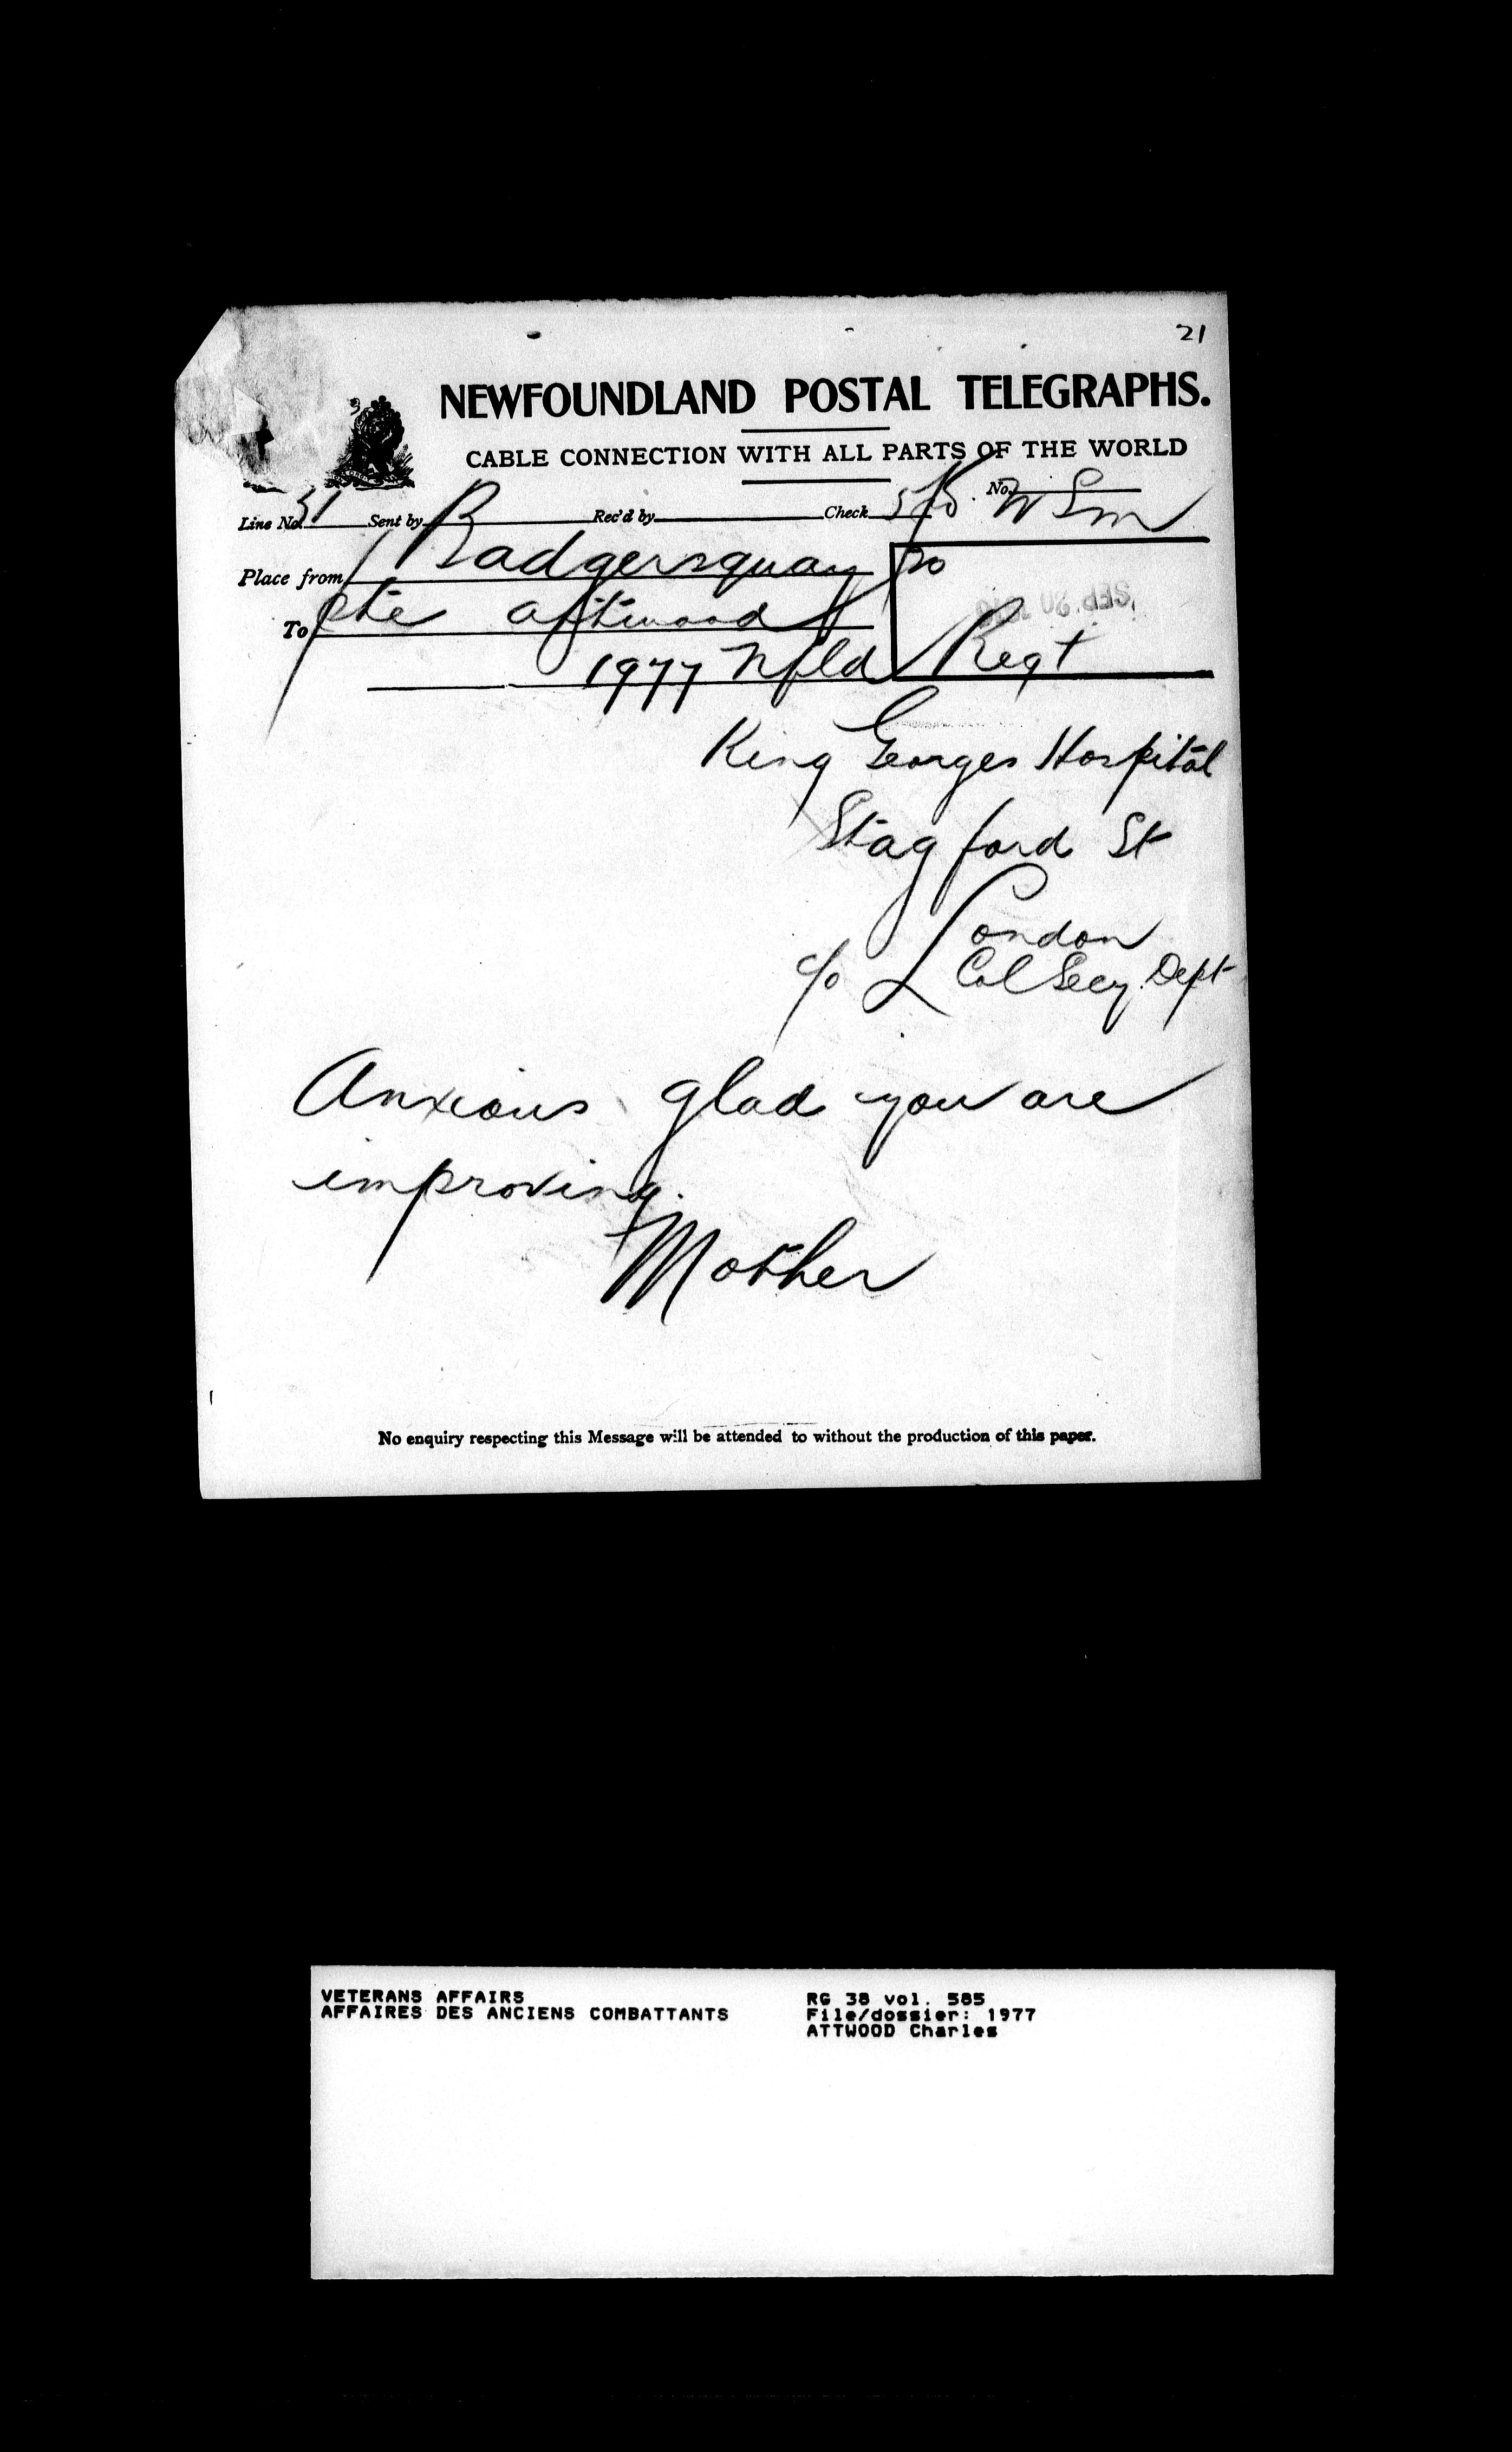 21
NEWFOUNDLAND POSTAL TELEGRAPHS.
CABLE CONNECTION WITH ALL PARTS OF THE WORLD
Line No. 31 Sent by B Rec'd by Check No.
Place from Badgersquay 20
To Pte attwood
1977 Nfld Regt
King Georges Hospital
Stagford St
London
c/o Col Secy. Dept
Anxious glad you are
improving.
Mother
No enquiry respecting this Message will be attended to without the production of this paper.
VETERANS AFFAIRS RG 38 vol. 585
AFFAIRES DES ANCIENS COMBATTANTS File/dossier: 1977
ATTWOOD Charles